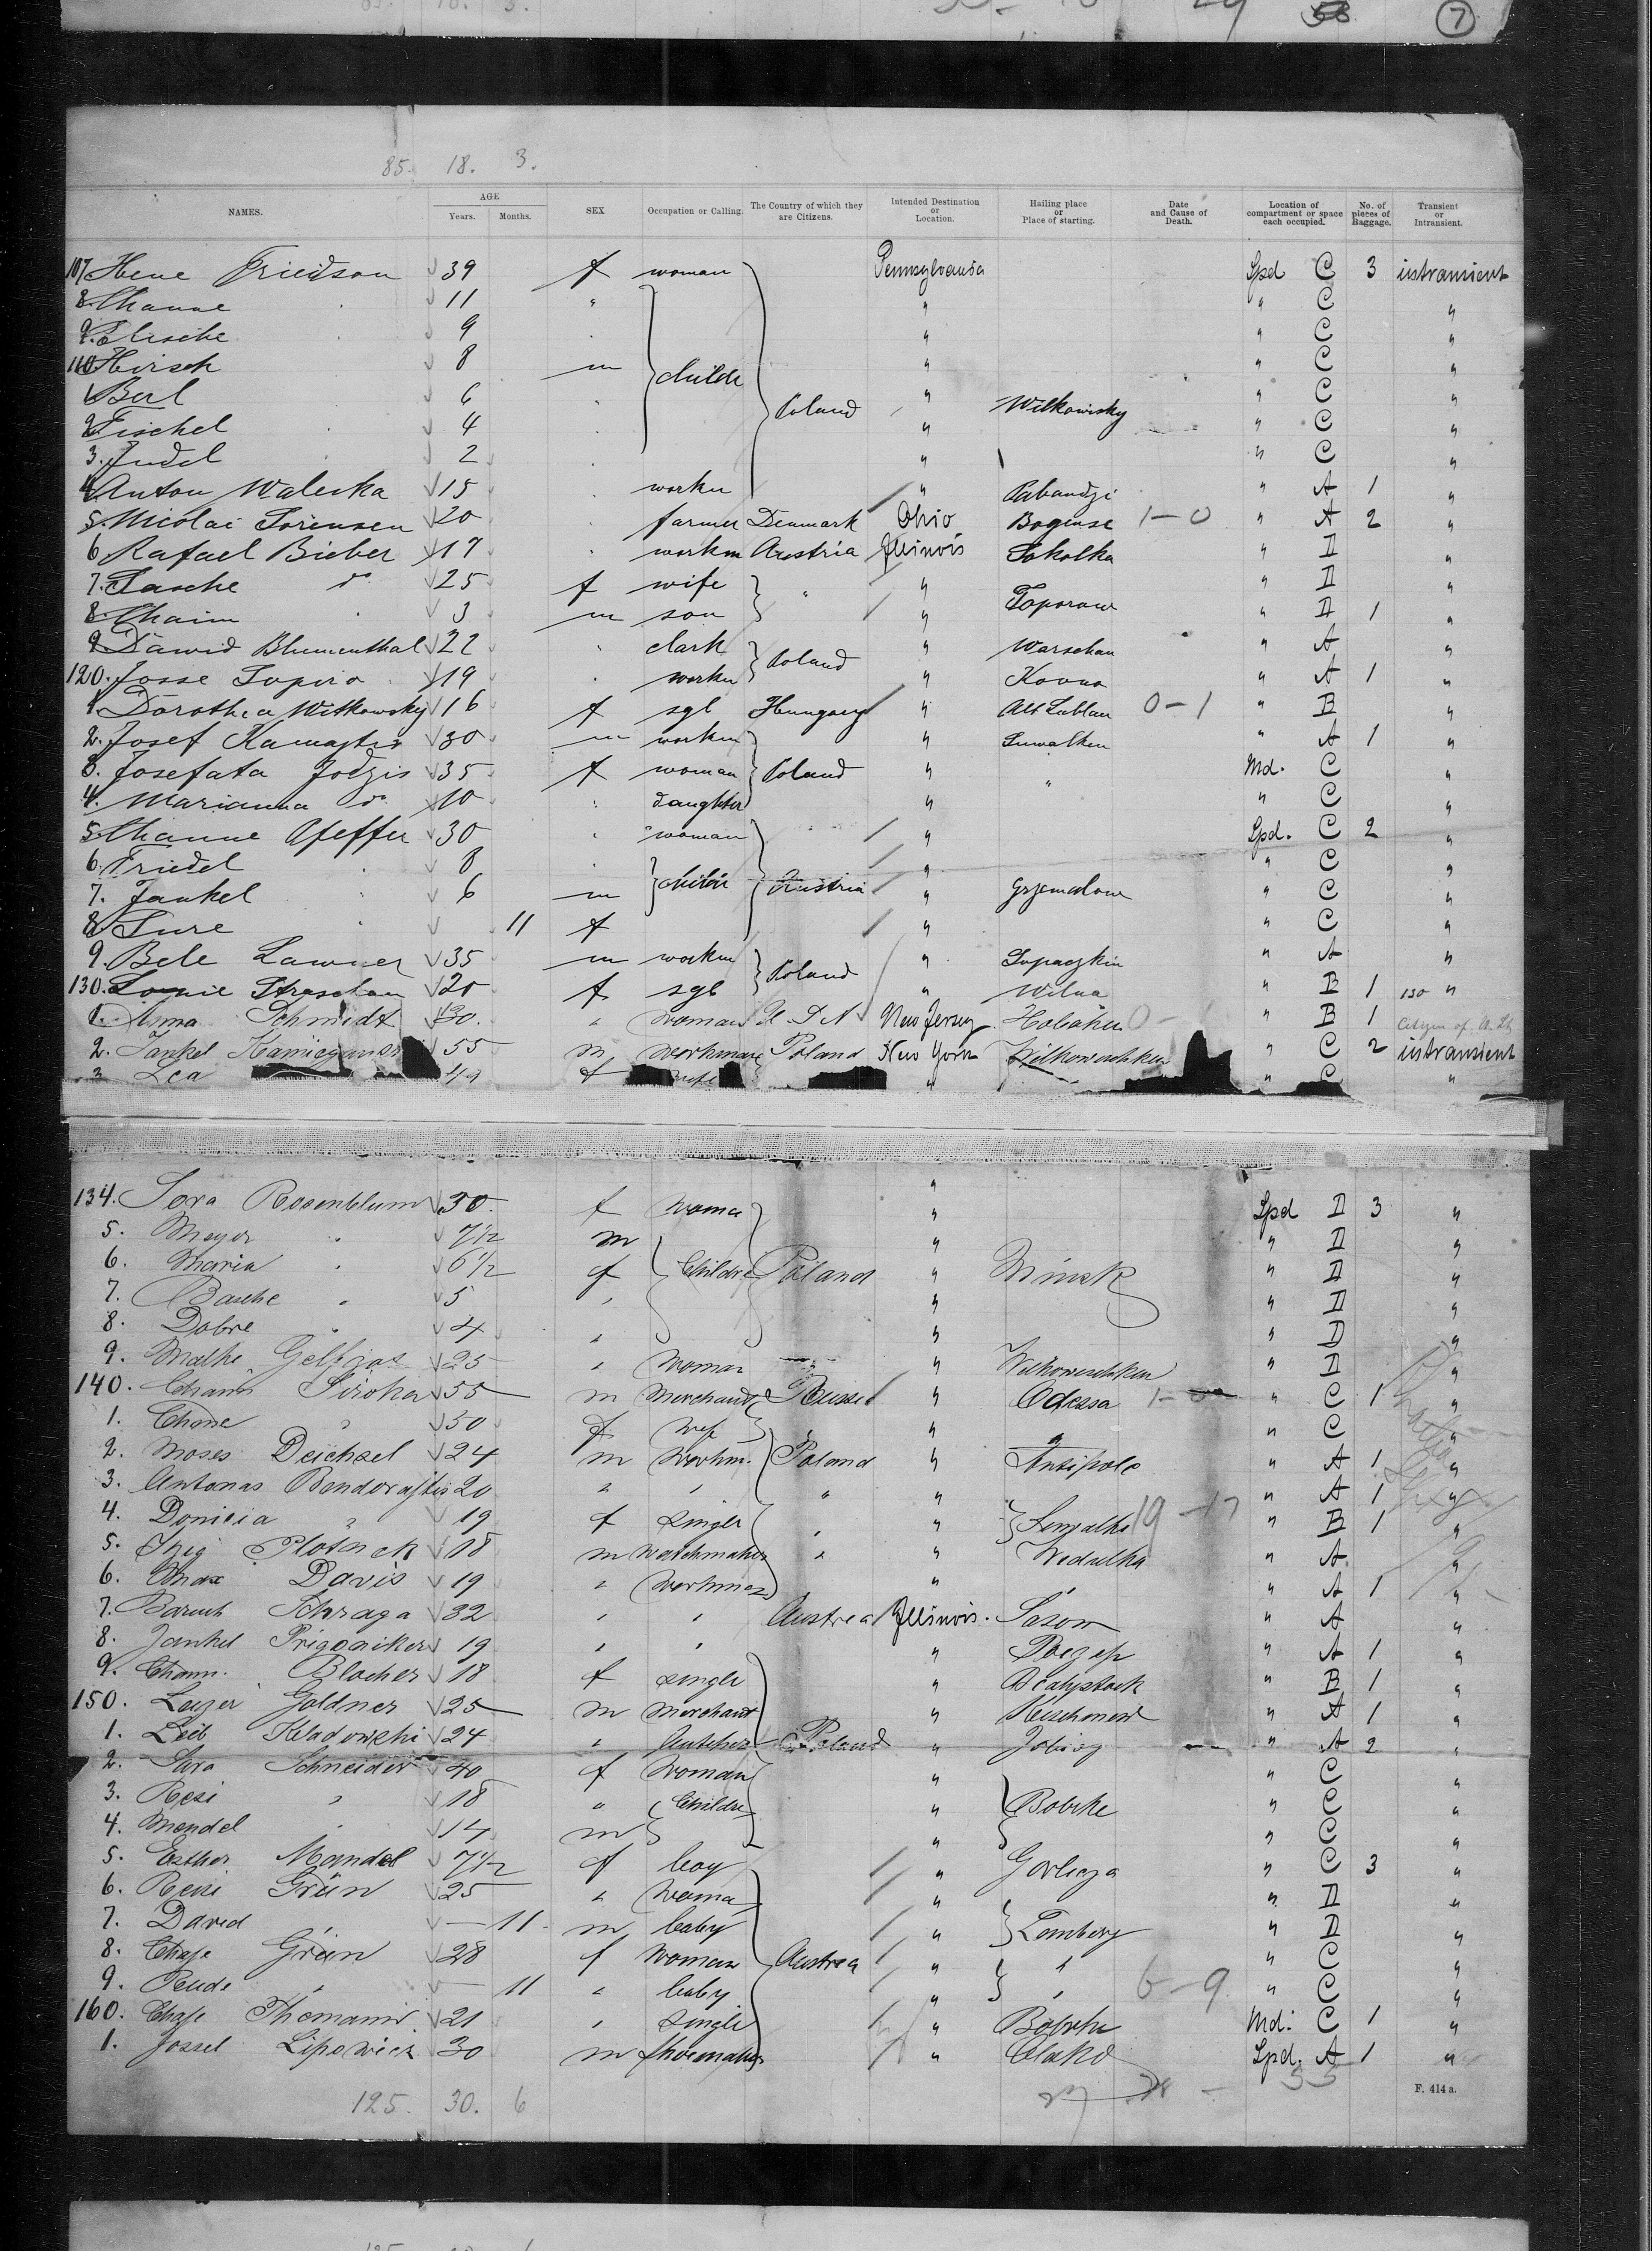 7
85. 18. 3.
NAMES. AGE Years. Months. SEX Occupation or Calling. The Country of which they are Citizens. Intended Destination or Location. Hailing place or Place of starting. Date and Cause of Death. Location of compartment or space each occupied. No. of pieces of Baggage. Transient or Intransient.
107 Hene Friedson 39 f woman Pennsylvania Spd C 3 intransient
8. Channe 11 " " " C "
9. Elische 9 " " C "
110 Hirsch 8 m childr " " C "
1. Berl 6 Poland " Wilkowisky " C "
2. Fischel 4 " " C "
3. Judel 2 " " C "
4. Anton Waleska 15 worker " Pabandzi " A 1 "
5. Nicolai Sörensen 20 farmer Denmark Ohio Bogense 1-0 " A 2 "
6. Rafael Bieber 17 workm Austria Illinois Sokolka " D "
7. Sasche do 25 f wife " " " D "
8. Chaim 3 m son " Toporow " D 1 "
9. Dawid Blumenthal 22 clark Poland " Warschau " A "
120. Josse Sapiro 19 worker " Kowno " A 1 "
1. Dorothea Witkowsky 16 f sgl Hungary " Alt Lublau 0-1 " B "
2. Josef 30 m worker " Suwalken " A 1 "
3. Josefata Jodzis 35 f woman Poland " " Md. C "
4. Marianna do 10 daughter " " C "
5. Channe Pfeffer 30 woman " Spd. C 2 "
6. Friedel 8 childr " " C "
7. Jankel 6 m Austria " Grzymalow " C "
8. Sure 11 f " " C "
9. Bele Lawner 35 m workm Poland " Sopaczkin " A "
130. Straschan 20 f sgl " Wilna " B 1 130 "
1. Anna Schmidt 30. " woman U S A New Jersey Hoboken 0- " B 1 Citizen of U. St.
2. Jankel 55 m workman Poland New York Wilkowischken " C 2 intransient
3 Lea 49 f wife " " C "
"
134. Sora Rosenblum 30. f woma " Spd D 3 "
5. Meyer " 7 1/2 m " " D "
6. Maria " 6 1/2 f Childre Poland " Minsk " D "
7. Basche " 5 " " " D "
8. Dobre " 4 " " " D "
9. Malke 25 " Woman " " Wilkowischken " D "
140. Chaim Siroka 55 m Merchant Russia " Odessa 1- " C 1 "
1. Chane " 50 f wife " " C "
2. Moses Deichsel 24 m Workm. Poland " Antipole " A 1 "
3. Antonas 20 " " " " " A 1 "
4. Domicia " 19 f single " " Suwalki 19-17 " B 1 "
5. Plotnek 18 m Watchmaker " " " A "
6. Max Davis 19 " Workman " " " A 1 "
7. Baruch Schraga 32 " " Austrea Illinois. Sasow " A "
8. Jankel 19 " " " " A 1 "
9. Chann. Blocher 18 f single " Bialystock " B 1 "
150. Leizer Goldner 25 m Merchant " Kischinew " A 1 "
1. Leib Kladowski 24 " Butcher Poland " " A 2 "
2. Sara Schneider 40 f Woman " " C "
3. Resi " 18 " Childre " Bobrke " C "
4. Mendel " 14 m " " C "
5. Esther Mandel 7 1/2 f boy " Gorlicza " C 3 "
6. Resi Grün 25 " Woma " " D "
7. David " 11 m baby " Lemberg " D "
8. Chaje Grün 28 f Woman Austrea " " " C "
9. " 11 " baby " " 6-9 " C "
160. Chaje Thomann 21 " single " Bobrke Md. C 1 "
1. Jossel Lipowicz 30 m shoemaker " Spd. A 1 "
125. 30. 6 33 F. 414 a.